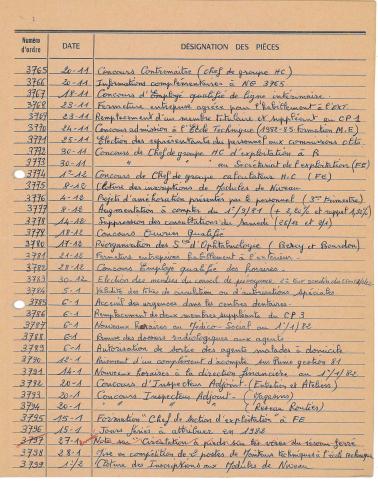 Numéro d'ordre DATE DÉSIGNATION DES PIÈCES
3765 20-11 Concours Contremaître (Chef de groupe HC)
3766 20-11 Informations complémentaires à NG 3765
3767 18-11 Concours d'Employé qualifié de ligne intérimaire
3768 23-11 Fermeture entreprise agréée pour l'habillement à l'EXT
3769 23-11 Remplacement d'un membre titulaire et suppléant au CP 1
3770 24-11 Concours admission à l'École Technique (1982-85 formation M.E)
3771 25-11 Élection des représentants du personnel aux commissions
3772 30-11 Concours de Chef de groupe HC d'exploitation à R
3773 30-11 au Secrétariat de l'exploitation (FE)
3774 1-12 Concours de Chef de groupe calculateur H.C (FE)
3775 8-12 Clôture des inscriptions de Modules de Niveau
3776 4-12 Projets d'amélioration présentés par le personnel (3me Trimestre)
3777 8-12 Augmentation à compter du 1/9/81 (+ 2,20% et rappel
3778 14-12 Suppression des consultations du Samedi (26/12 et 2/1)
3779 18-12 Concours Ouvrier Qualifié
3780 17-12 Réorganisation des Sces d'Ophtalmologie (Bercy et Bourdon)
3781 21-12 Fermeture entreprises habillement à l'extérieur
3782 28-12 Concours Employé qualifié des horaires
3783 30-12 Élection des membres du conseil de
3784 5-1 Validité des titres de circulation ou d'autorisations spéciales
3785 6-1 Accueil des urgences dans les centres dentaires
3786 6-1 Remplacement de deux membres suppléants du CP 3
3787 6-1 Nouveaux horaires au Médico-Social au 1°/1/82
3788 6-1 Remise des dossiers radiologiques aux agents
3789 6-1 Autorisation de sortie des agents malades à domicile
3790 12-1 Paiement d'un complément d'acompte sur Prime gestion 81
3791 14-1 Nouveaux horaires à la direction financière au 1°/1/82
3792 20-1 Concours d'Inspecteur Adjoint (Entretien et Ateliers)
3793 20-1 Concours Inspecteur Adjoint (Magasins)
3794 20-1 " " " (Réseau Routier)
3795 15-1 Formation "Chef de Section d'exploitation" à FE
3796 15-1 Jours fériés à attribuer en 1982
3797 27-1 Note sur "Circulation à pieds sur les voies du réseau ferré
3798 28-1 Mise en compétition de 2 postes de Moniteurs techniques à l'école technique
3799 1-2 Clôture des Inscriptions aux Modules de Niveau